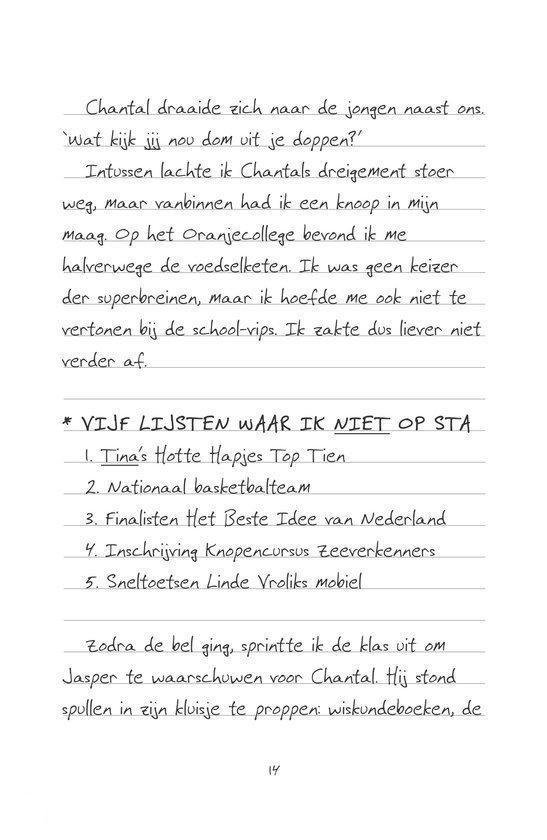 Chantal draaide zich naar de jongen naast ons.
‘Wat kijk jij nou dom uit je doppen?’
Intussen lachte ik Chantals dreigement stoer
weg, maar vanbinnen had ik een knoop in mijn
maag. Op het Oranjecollege bevond ik me
halverwege de voedselketen. Ik was geen keizer
der superbreinen, maar ik hoefde me ook niet te
vertonen bij de school-vips. Ik zakte dus liever niet
verder af.
* VIJF LIJSTEN WAAR IK NIET OP STA
1. Tina's Hotte Hapjes Top Tien
2. Nationaal basketbalteam
3. Finalisten Het Beste Idee van Nederland
4. Inschrijving Knopencursus Zeeverkenners
5. Sneltoetsen Linde Vroliks mobiel
Zodra de bel ging, sprintte ik de klas uit om
Jasper te waarschuwen voor Chantal. Hij stond
spullen in zijn kluisje te proppen: wiskundeboeken, de
14